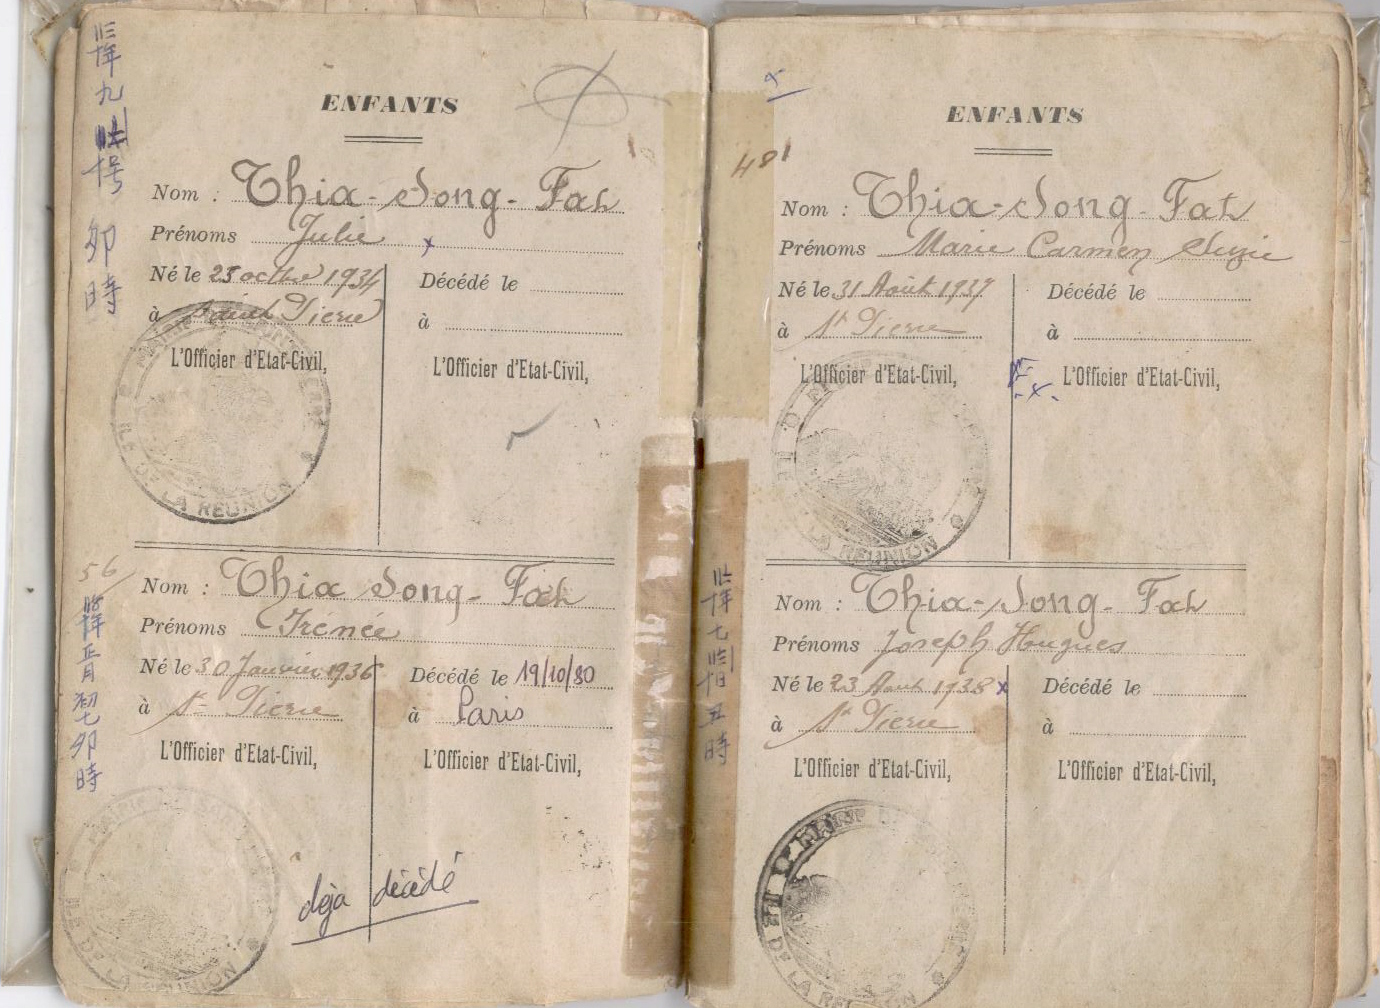 ENFANTS
Nom : Thia-Song-Fat
Prénoms Julie x
Né le 23 octbre 1934
à Saint Pierre
Décédé le
à
L'Officier d'Etat-Civil,
L'Officier d'Etat-Civil,
ILE DE LA REUNION
九
号
卯
時
56
Nom : Thia Song-Fat
Prénoms Irenée
Né le 30 Janvier 1936
à St Pierre
Décédé le 19/10/80
à Paris
L'Officier d'Etat-Civil,
L'Officier d'Etat-Civil,
déja décédé
ILE DE LA REUNION
年
正
月
初
七
卯
時
ENFANTS
481
Nom : Thia-Song-Fat
Prénoms Marie Carmen Suzie
Né le 31 Août 1937
à St Pierre
Décédé le
à
L'Officier d'Etat-Civil,
L'Officier d'Etat-Civil,
LA REUNION
Nom : Thia-Song-Fat
Prénoms Joseph Hugues
Né le 23 Aout 1938 x
à St Pierre
Décédé le
à
L'Officier d'Etat-Civil,
L'Officier d'Etat-Civil,
DE LA REUNION
年
七
丑
時